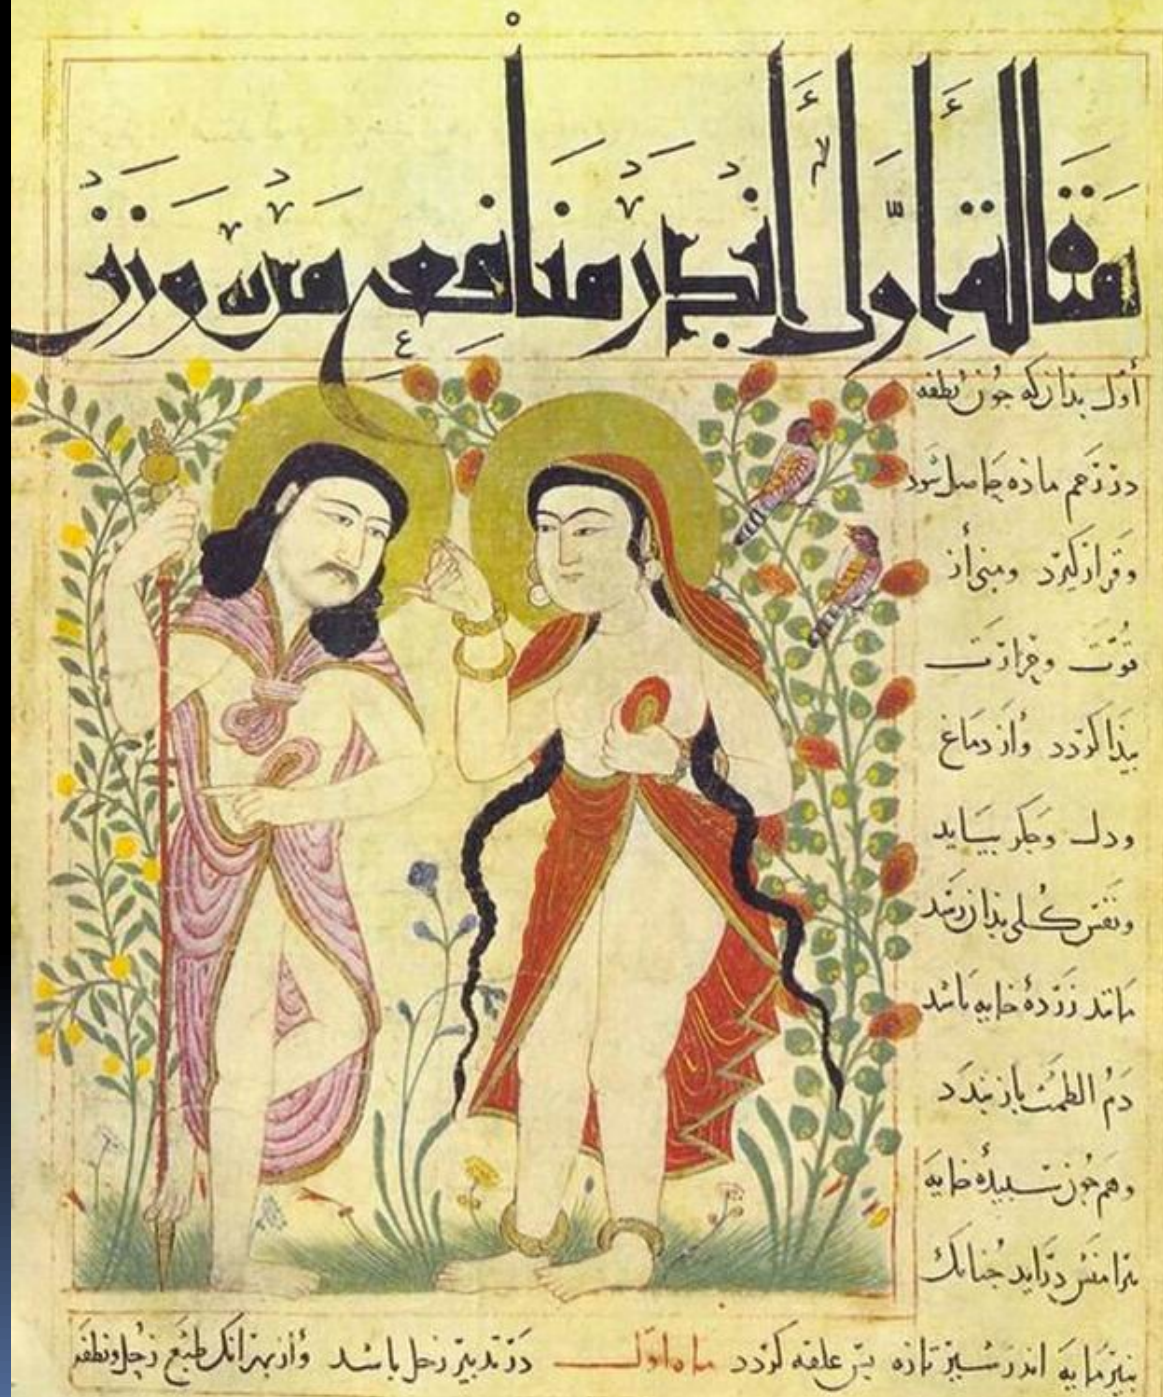 مقالة أوّل أندر منافع مردم وزن
أوّل بدان که جون نطفه
در رحم ماده حاصل شود
و قرار کیرد و منی أز
قوّت و حرارت
بیذا کردد و أز دماغ
و دل و جکر بیاید
و نفس کلی بذان رسد
مانند زردهٔ خایه باشد
دم الطمث باز بندد
و هم جون سبیدهٔ خایه
بیرامنش درآید جنانک
بنیرمایه اندر شیر تازه بس علقه کردد ماه اوّل در تدبیر زحل باشد و أز بهر آنک طبع زحل و نطفه